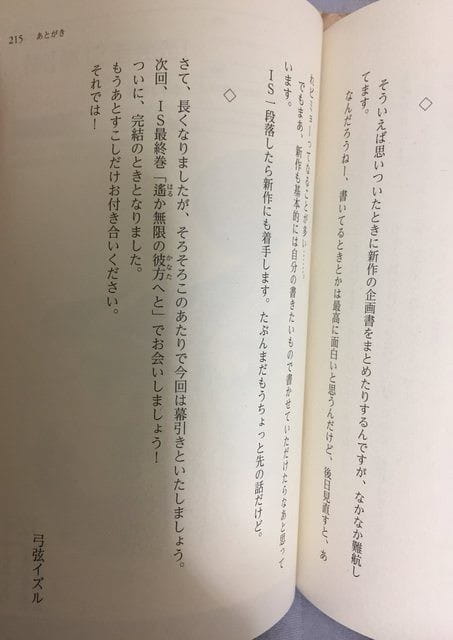 ◇
そういえば思いついたときに新作の企画書をまとめたりするんですが、なかなか難航し
てます。
なんだろうねー、書いてるときとかは最高に面白いと思うんだけど、後日見直すと、あ
れ?ビミョーってなることが多い……。
でもまあ、新作も基本的には自分の書きたいもので書かせていただけたらなあと思って
います。
IS一段落したら新作にも着手します。たぶんまだもうちょっと先の話だけど。
◇
さて、長くなりましたが、そろそろこのあたりで今回は幕引きといたしましょう。
次回、IS最終巻「遙か無限の彼方へと」でお会いしましょう!
はる
かなた
ついに、完結のときとなりました。
もうあとすこしだけお付き合いください。
それでは!
弓弦イズル
215 あとがき